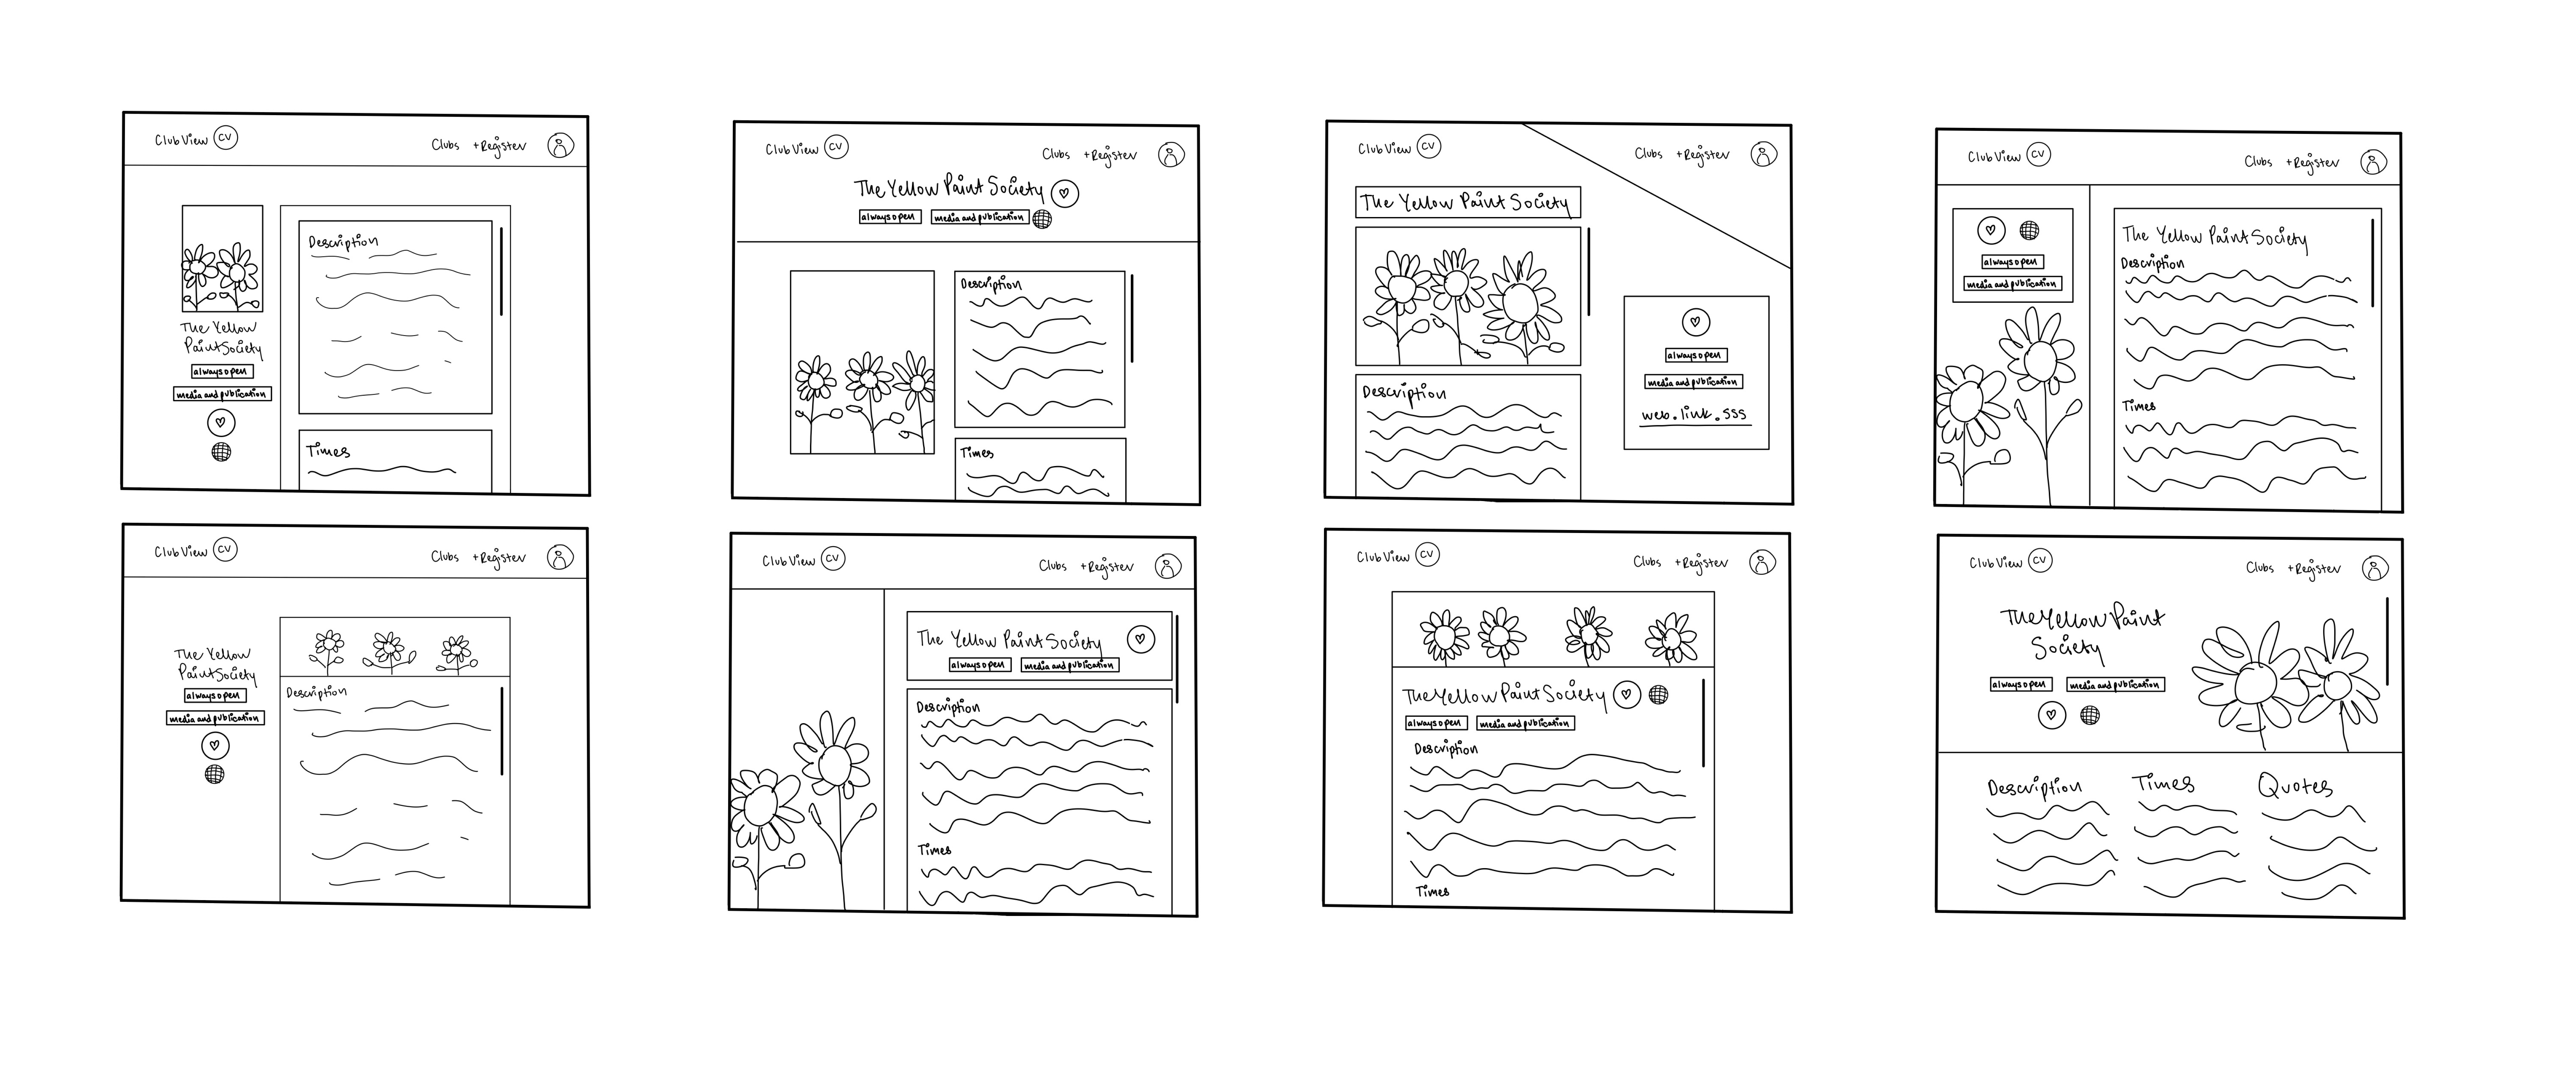 Club View CV Clubs +Register
Description
The Yellow
Paint Society
always open
media and publication
Times
Club View CV Clubs +Register
The Yellow Paint Society
always open media and publication
Description
Times
Club View CV Clubs +Register
The Yellow Paint Society
Description
always open
media and publication
web.link.sss
Club View CV Clubs +Register
always open
media and publication
The Yellow Paint Society
Description
Times
Club View CV Clubs +Register
The Yellow
Paint Society
always open
media and publication
Description
Club View CV Clubs +Register
The Yellow Paint Society
always open media and publication
Description
Times
Club View CV Clubs +Register
The Yellow Paint Society
always open media and publication
Description
Times
Club View CV Clubs +Register
The Yellow Paint
Society
always open media and publication
Description Times Quotes